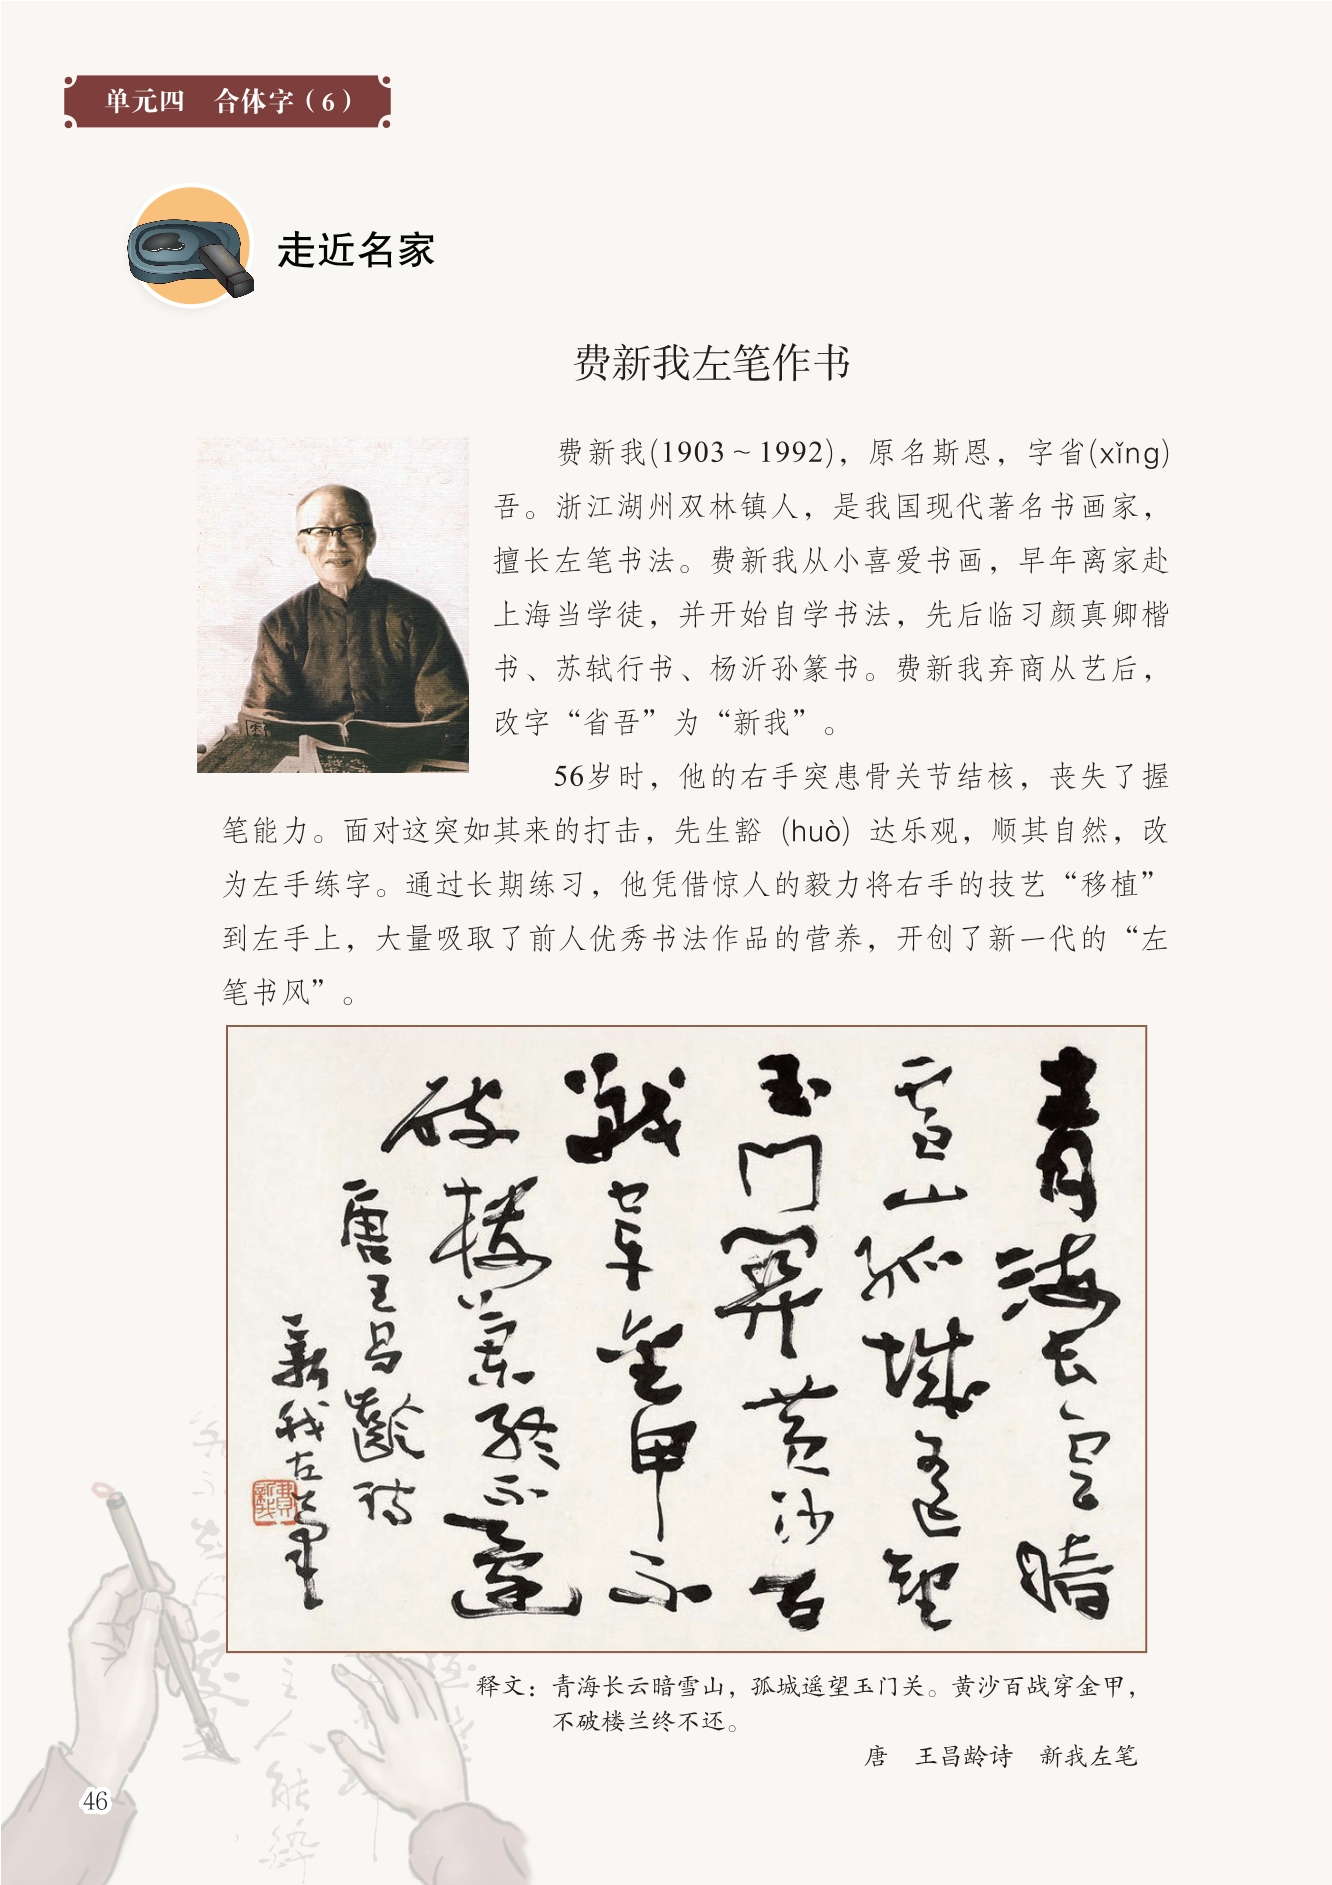 单元四 合体字（6）
走近名家
费新我左笔作书
费新我(1903～1992)，原名斯恩，字省(xǐng)
吾。浙江湖州双林镇人，是我国现代著名书画家，
擅长左笔书法。费新我从小喜爱书画，早年离家赴
上海当学徒，并开始自学书法，先后临习颜真卿楷
书、苏轼行书、杨沂孙篆书。费新我弃商从艺后，
改字“省吾”为“新我”。
56岁时，他的右手突患骨关节结核，丧失了握
笔能力。面对这突如其来的打击，先生豁（huò）达乐观，顺其自然，改
为左手练字。通过长期练习，他凭借惊人的毅力将右手的技艺“移植”
到左手上，大量吸取了前人优秀书法作品的营养，开创了新一代的“左
笔书风”。
青海长云暗
雪山孤城遥望
玉门关黄沙百
战穿金甲不
破楼兰终不还
唐王昌龄诗
新我左笔
释文：青海长云暗雪山，孤城遥望玉门关。黄沙百战穿金甲，
不破楼兰终不还。
唐 王昌龄诗 新我左笔
46